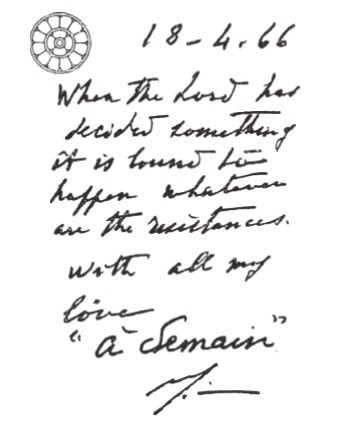 18-4.66
When the Lord has
decided something
it is bound to
happen whatever
are the resistances.
with all my
love
"à demain"